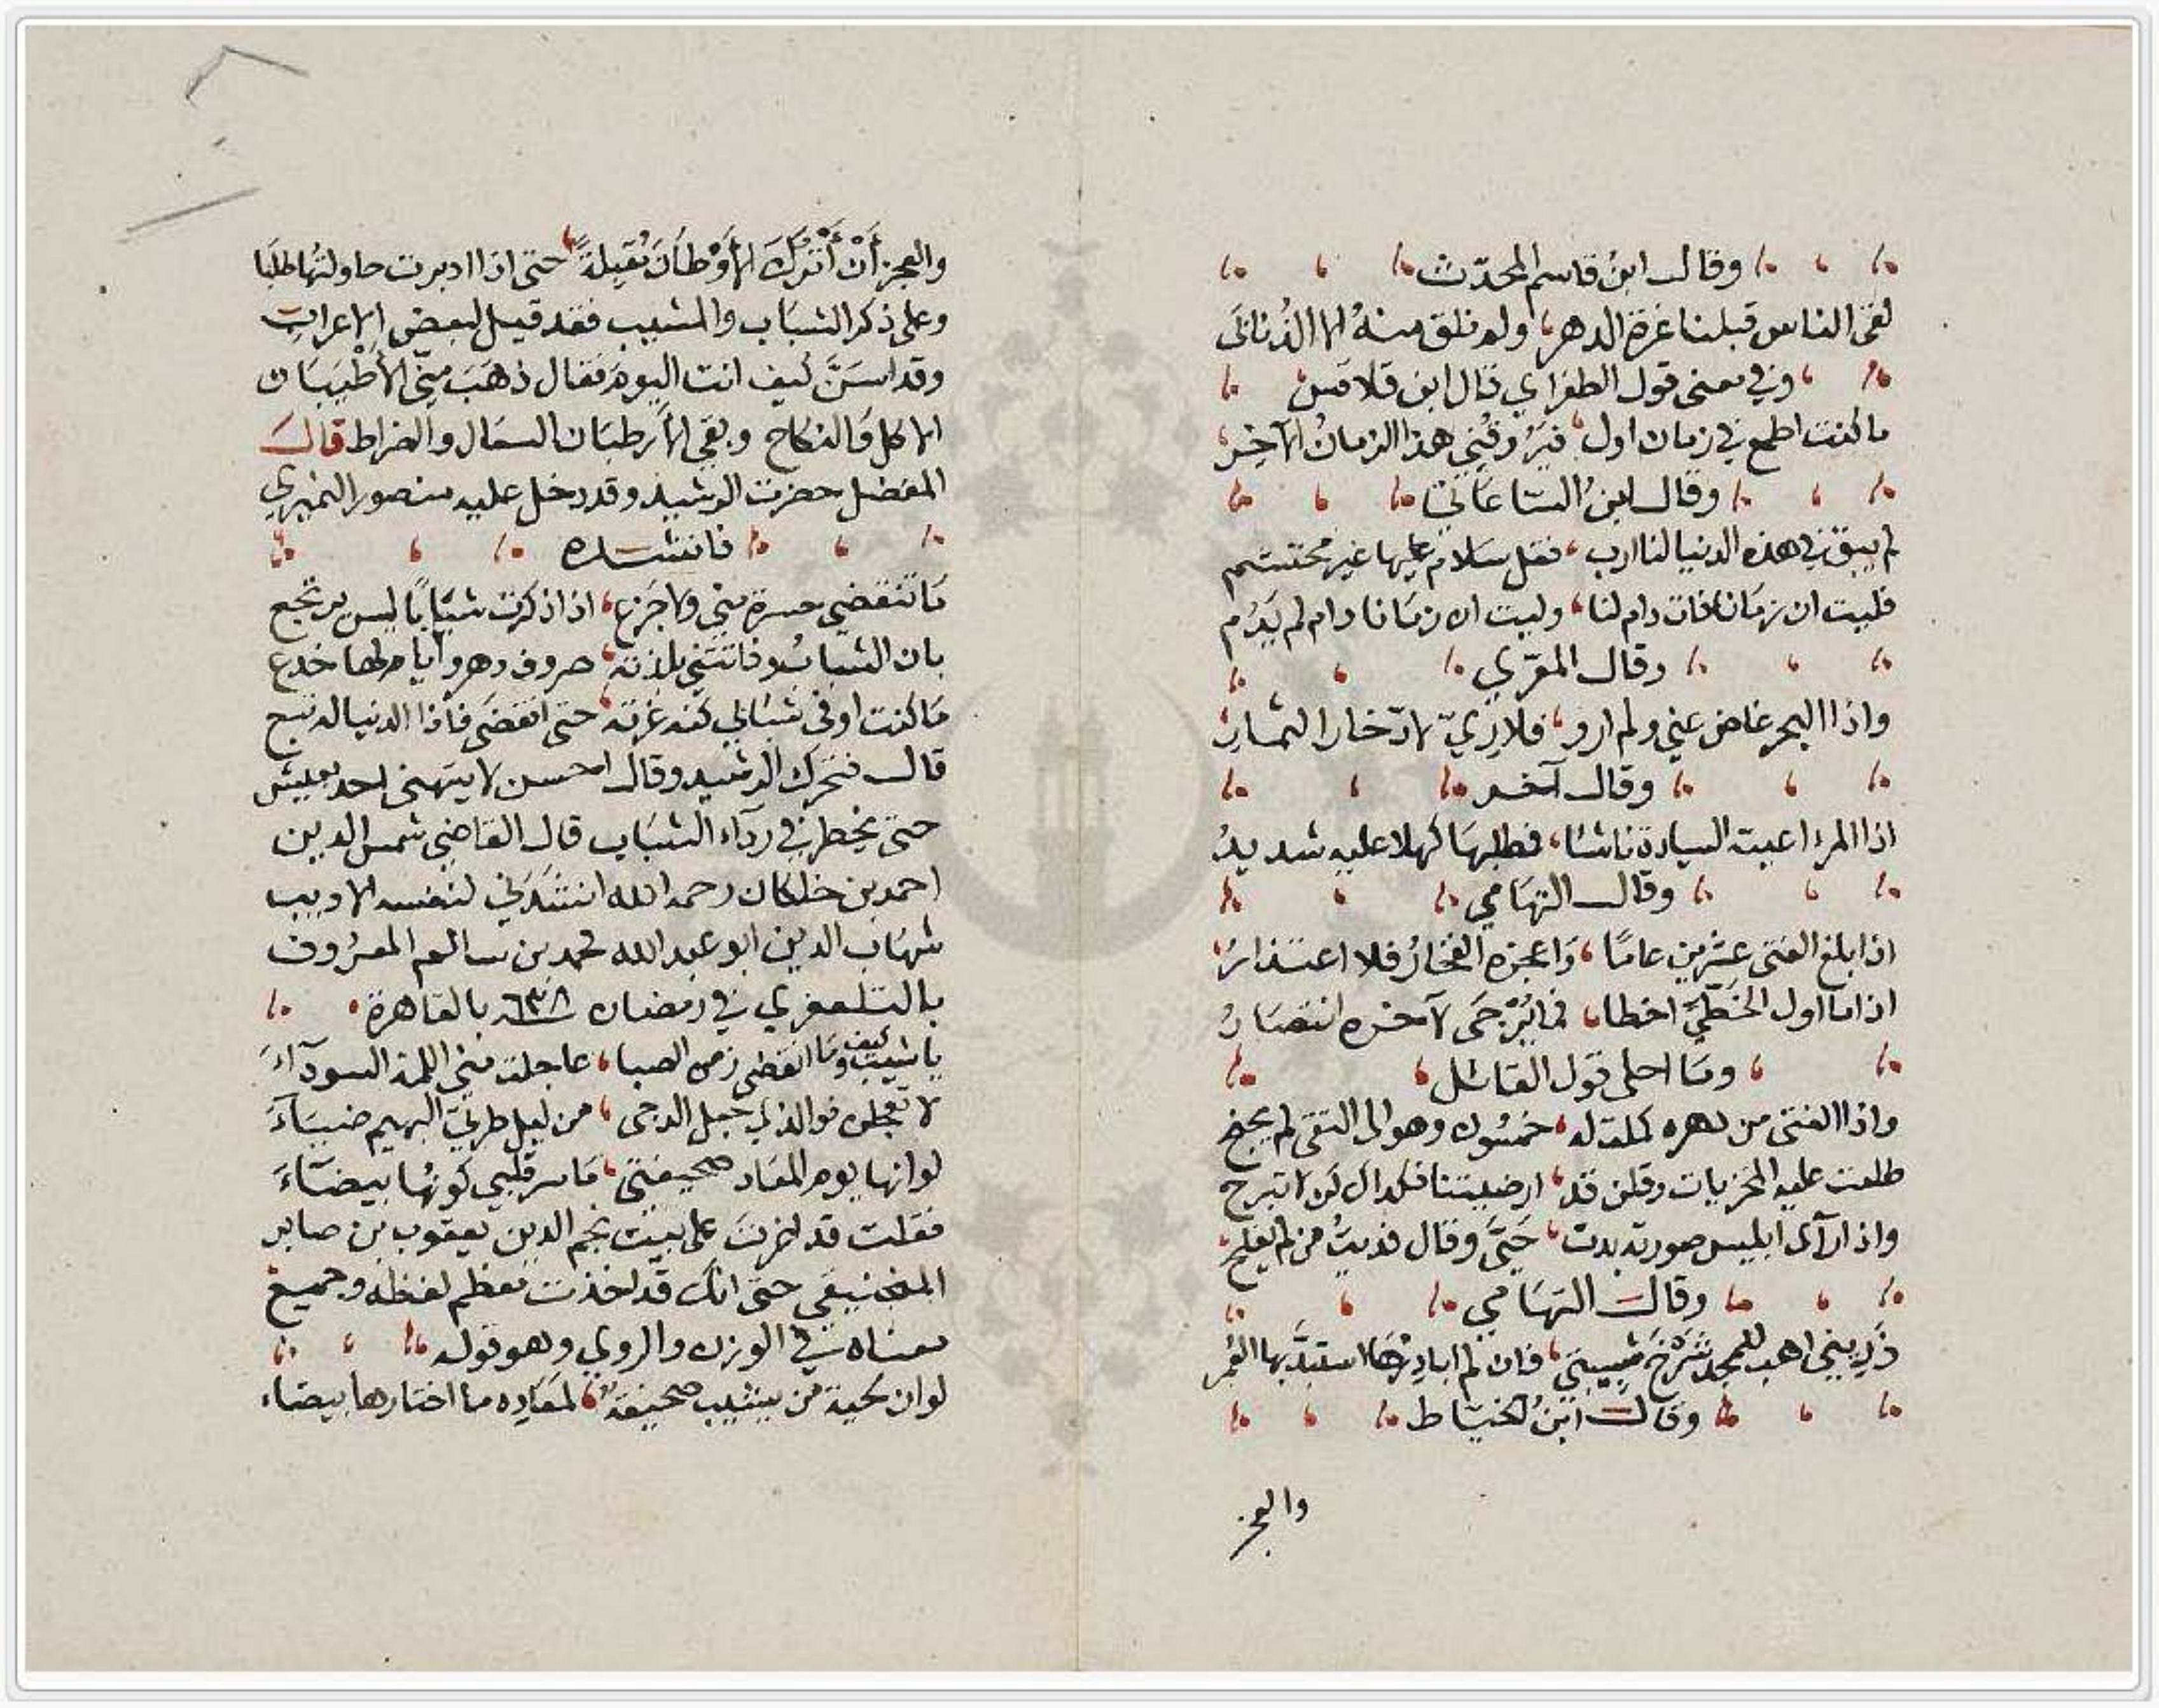 وقال ابنُ قاسم المحدّث
لقى الناس قبلنا غرة الدهر، ولم نلق منهُ الا الذُنابَى
وفي معنى قول الطغراي قال ابن قلاقس
ما كنت اطمع في زمان اول، فيَرُوقُني هذا الزمانُ الآخِرُ
وقال ابنُ السّاعاتي
لم يبق في هذه الدنيا لنا ارب، فقل سلام عليها غير محتشم
فليت ان زمَانا فات دام لنا، وليت ان زمَانا دام لم يَدُم
وقال المعرّي
واذا البحر غاض عني ولم ارو، فلا رِيّ لادّخار الثماد
وقال آخر
اذا المرء اعيته السيادة ناشئا، فطلبهَا كهلا عليه شديدُ
وقال التهَامي
اذا بلغ الفتى عشرين عامًا، وَاعجزه الفخارُ فلا اعتذارُ
اذا مَا اول الخَطّيّ اخطا، فما يُرْجَى لآخره انتصَارُ
ومَا احلى قول القائل
واذا الفتى من دهره كملت له، خمسُون وهو الى التقى لم يجنح
طلعت عليه المخزيات وقلن قد، ارضيتنا فكذاك كن لا تبرح
واذا رآى ابليس صورته بدت، حَيّى وقال فديتُ من لم يفلح
وقال التهَامي
ذَرِيني اهب للمجد شَرْخَ شبيبتي، فان لم ابادِرْهَا استبدّ بها العُمر
وقال ابنُ الخيّاط
والعجز
والعجز أَنْ أَتْرُكَ الأَوْطَانَ مُقبِلةً، حتى اذا ادبرت حاولتُها طلَبَا
وعلى ذكر الشبَاب والمشيب فقد قيل لبعض الاعرابِ
وقد اسَنَّ كيف انت اليوم فقال ذهَبَ مِني الأطْيَبَان
الاكل وَالنكاح وبقي الأرطبَان السعَال والضراط قال
المفضل حضرت الرشيد وقد دخل عليه منصور النميري
فانشده
مَا تنقضي حسرة مني ولا جَزع، اذا ذكرت شبَابًا ليس يرتجع
بان الشبابُ وفاتتني بلذته، صروف دهر وأيام لها خدع
مَا كنت اوفى شبَابي كنه غرته، حتى انقضَى فاذا الدنيا له تبع
قال فتحرك الرشيد وقال احسن لا يتهنى احد بعيش
حتى يخطر في ردَآء الشبَاب قال القاضي شمس الدين
احمد بن خلكان رحمه الله انشَدَني لنفسه الاديب
شهَاب الدين ابو عبد الله محمد بن سالم المعرُوف
بالتلعفري في رمضان ٦٣٨ بالقاهرة
يا شيب كيف ومَا انقضى زمن الصبا، عاجلت مني اللمة السودآءَ
لا تعجلن فوالذي جعل الدجى، من ليل طرتي البهيم ضيَآءَ
لو انها يوم المعَاد صحيفتي، مَا سر قلبي كونُها بيضَآءَ
فقلت قد اغرت على بيت نجم الدين يعقوب بن صابر
المنجنيقي حتى انك قد اخذت معظم لفظه وجميع
معناه في الوزن والروي وهو قوله
لو ان لحية من يشيب صحيفةٌ، لمعَادِه ما اختارها بيضاء